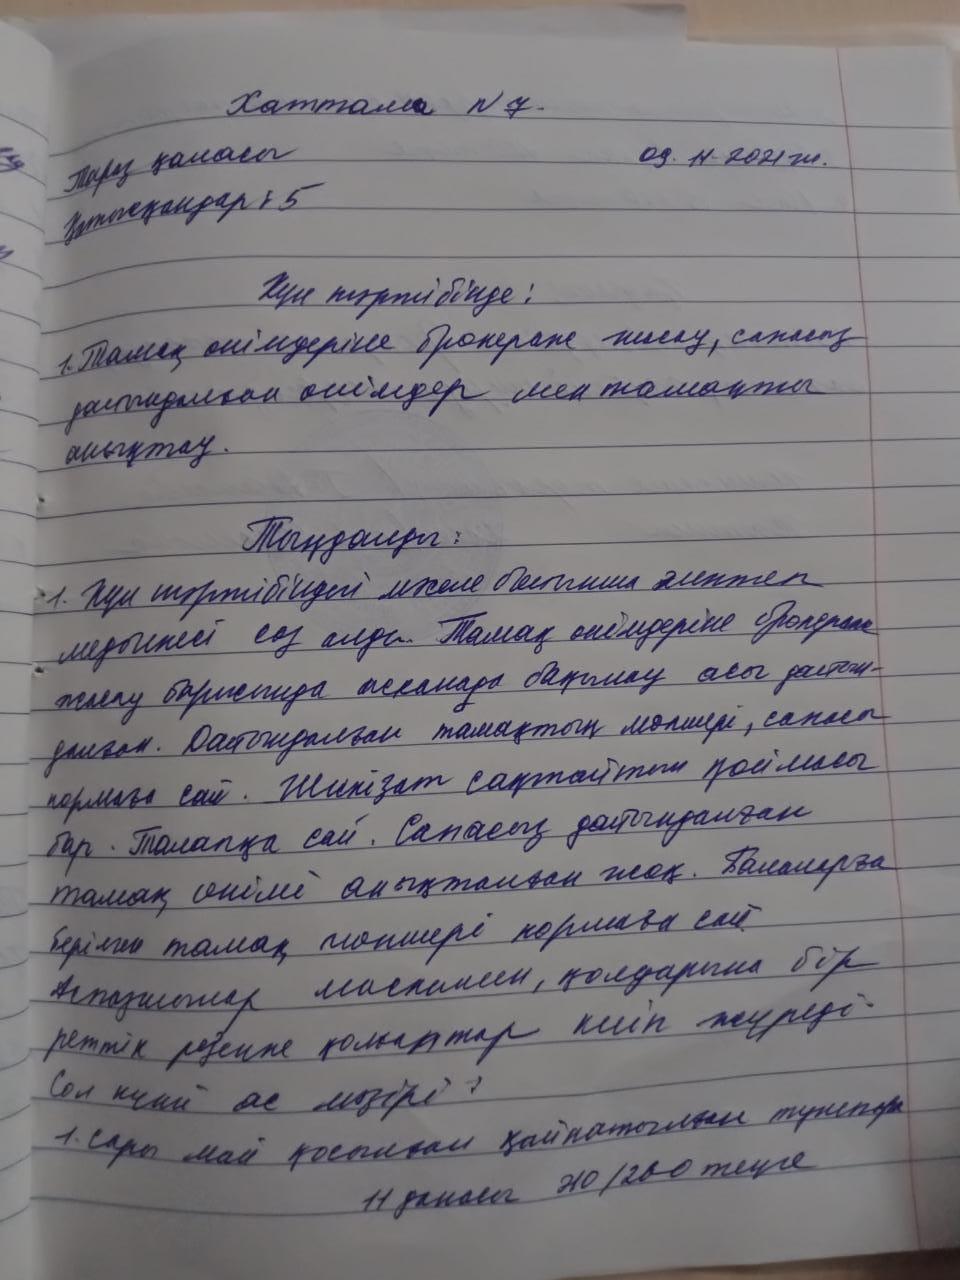 Хаттама N 7.
Тараз қаласы 09. 11. 2021 ж.
Қатысқандар: 5
Күн тәртібінде:
1. Тамақ өнімдеріне бракераж жасау, сапасыз
дайындалған өнімдер мен тамақты
анықтау.
Тыңдалды:
1. Күн тәртібіндегі мәселе бойынша мектеп
медбикесі сөз алды. Тамақ өнімдеріне бракераж
жасау барысында асханада бақылау асы дайын-
далған. Дайындалған тамақтың мөлшері, сапасы
нормаға сай. Шикізат сақтайтын қоймасы
бар. Талапқа сай. Сапасыз дайындалған
тамақ өнімі анықталған жоқ. Балаларға
берілген тамақ мөлшері нормаға сай.
Аспазшылар маскамен, қолдарына бір
реттік резеңке қолғаптар киіп жүреді.
Сол күнгі ас мәзірі:
1. сары май қосылған қайнатылған
11 данасы /200 теңге